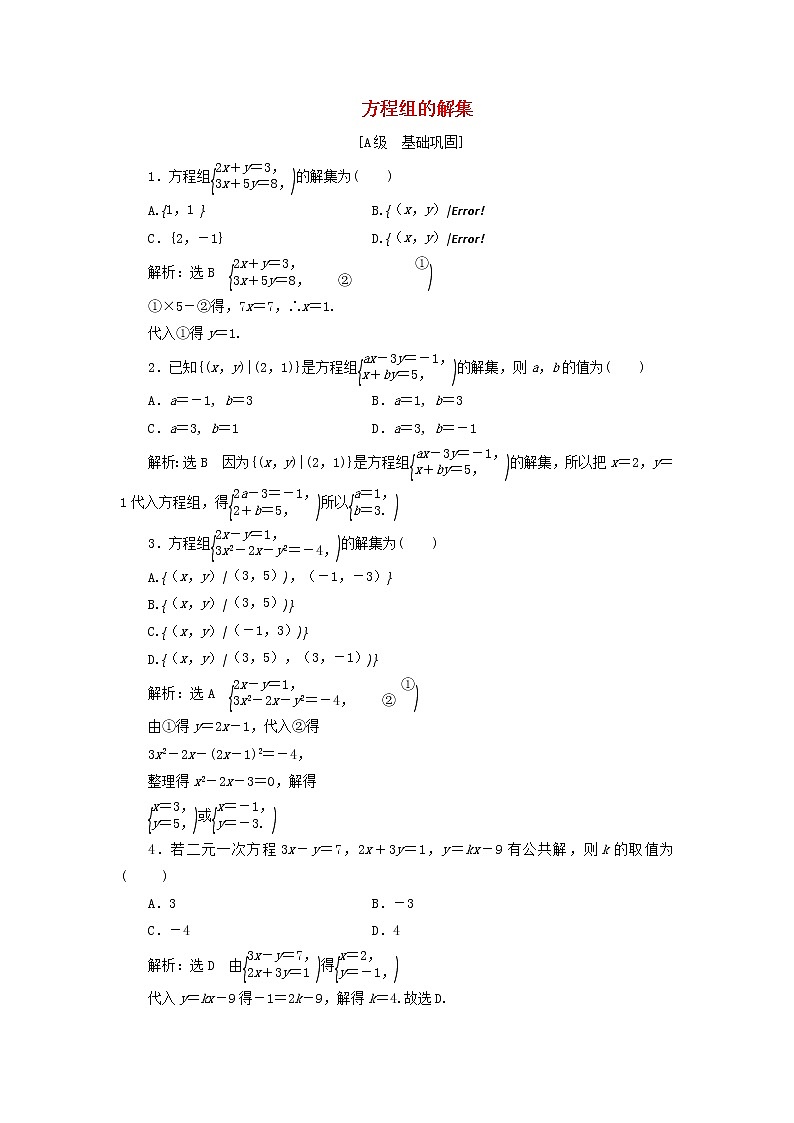 方程组的解集
[A级　基础巩固]
1．方程组{2x＋y＝3，3x＋5y＝8，)的解集为(　　)
A.{1，1 }　B.{（x，y）|Error!
C．{2，－1}　D.{（x，y）|Error!
解析：选B　{2x＋y＝3，　①　3x＋5y＝8，　②)
①×5－②得，7x＝7，∴x＝1.
代入①得y＝1.
2．已知{(x，y)|(2，1)}是方程组{ax－3y＝－1，x＋by＝5，)的解集，则a，b的值为(　　)
A．a＝－1, b＝3　B．a＝1, b＝3
C．a＝3, b＝1　D．a＝3, b＝－1
解析：选B　因为{(x，y)|(2，1)}是方程组{ax－3y＝－1，x＋by＝5，)的解集，所以把x＝2，y＝
1代入方程组，得{2a－3＝－1，2＋b＝5，)所以{a＝1，b＝3.)
3．方程组{2x－y＝1，3x²－2x－y²＝－4，)的解集为(　　)
A.{（x，y）|（3，5）)，（－1，－3）}
B.{（x，y）|（3，5）)}
C.{（x，y）|（－1，3）)}
D.{（x，y）|（3，5），（3，－1）)}
解析：选A　{2x－y＝1，　①　3x²－2x－y²＝－4，　②)
由①得y＝2x－1，代入②得
3x²－2x－(2x－1)²＝－4，
整理得x²－2x－3＝0，解得
{x＝3，y＝5，)或{x＝－1，y＝－3.)
4．若二元一次方程3x－y＝7，2x＋3y＝1，y＝kx－9有公共解，则k的取值为
(　　)
A．3　B．－3
C．－4　D．4
解析：选D　由{3x－y＝7，2x＋3y＝1)得{x＝2，y＝－1，)
代入y＝kx－9得－1＝2k－9，解得k＝4.故选D.